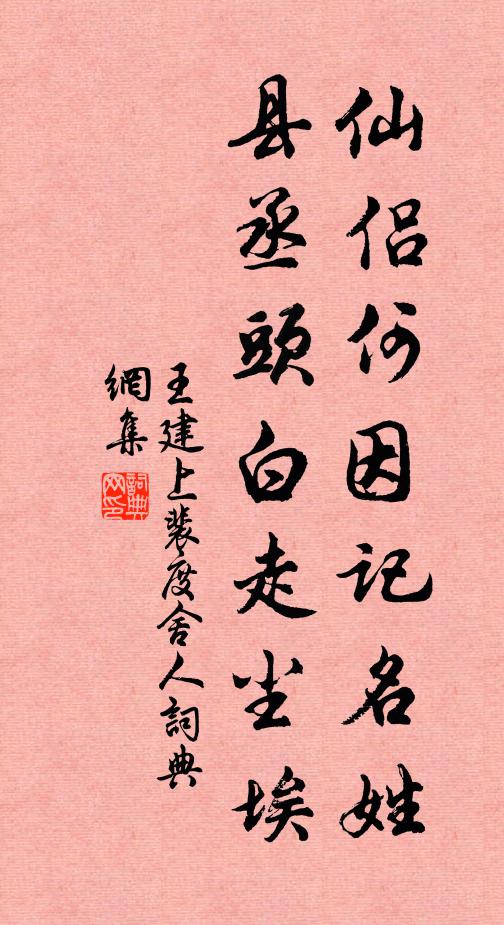 仙侣何因记名姓
县丞頭白走尘埃
王建上裴度舍人詞典
網集
詞典
网印